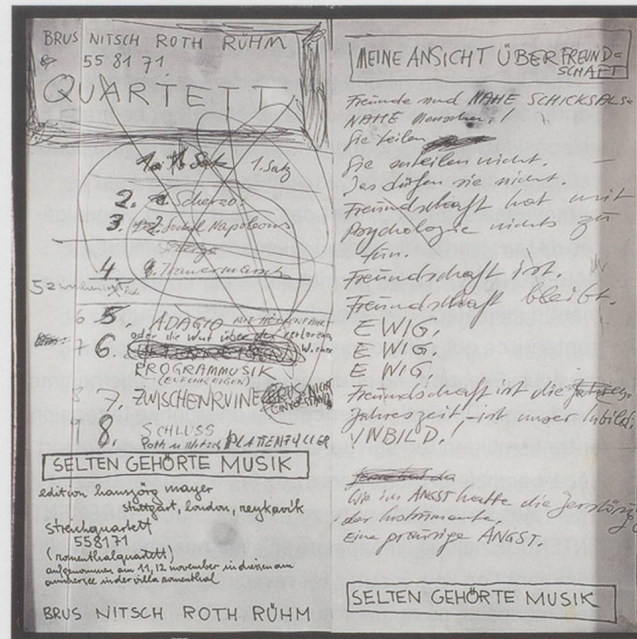 BRUS NITSCH ROTH RÜHM
558171
QUARTETT
1. Satz 1. Satz
2. Scherzo
3. Napoleons
4 Trauermarsch
5 zwischen
6 5. ADAGIO
7 6. oder die Wut über den verlorenen
PROGRAMMUSIK
8 7. ZWISCHENRUINE BRUS NICHT
9 8. SCHLUSS
Roth u Nitsch PLATTENFÜLLER
SELTEN GEHÖRTE MUSIK
edition hansjörg mayer
stuttgart, london, reykjavik
streichquartett
558171
(romenthalquartett)
aufgenommen am 11, 12 november in diessen am
ammersee in der villa romenthal
BRUS NITSCH ROTH RÜHM
MEINE ANSICHT ÜBER FREUND=
SCHAFT
Freunde sind NAHE SCHICKSALS=
NAHE Menschen!
Sie teilen
Sie urteilen nicht.
Das dürfen sie nicht.
Freundschaft hat mit
Psychologie nichts zu
tun.
Freundschaft ist.
Freundschaft bleibt.
EWIG,
EWIG,
EWIG,
Freundschaft ist die
Jahreszeit, - ist unser
INBILD.
Wie im ANGST hatte die
der Instrumente.
Eine ANGST.
SELTEN GEHÖRTE MUSIK